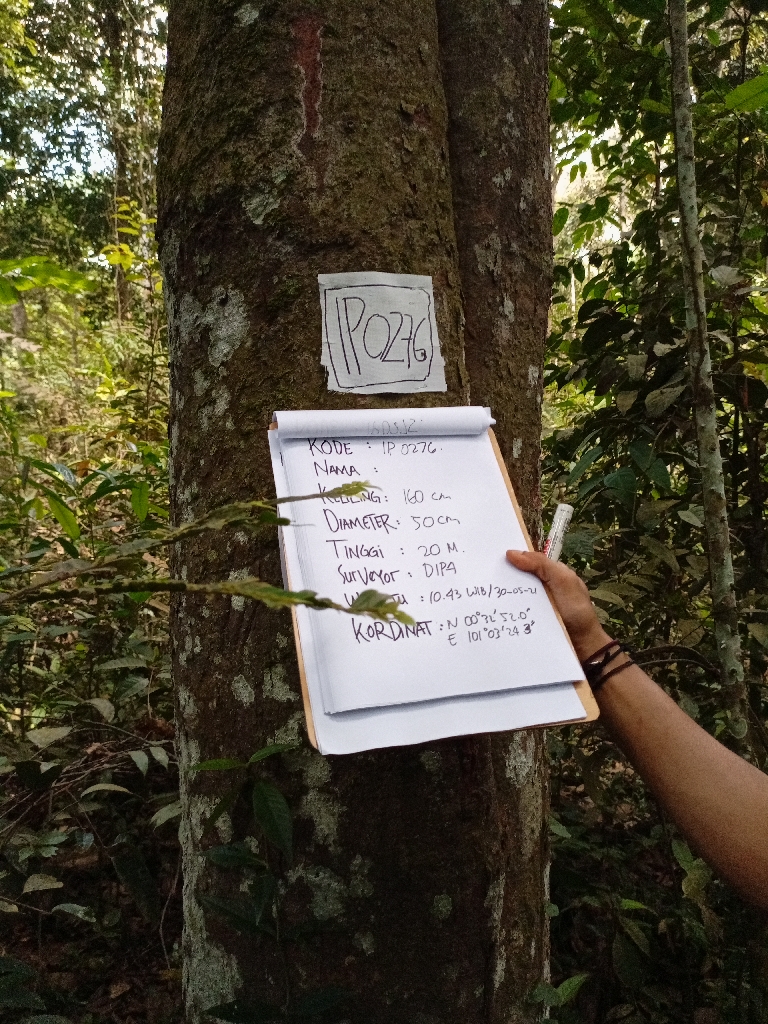 IP0276
KODE : IP 0276.
NAMA :
KELILING : 160 cm
DIAMETER : 50cm
TINGGI : 20 M.
SurVeyor : DIPA
: 10.43 WIB/30-05-21
KORDINAT : N 00°32'52.0"
E 101°03'24